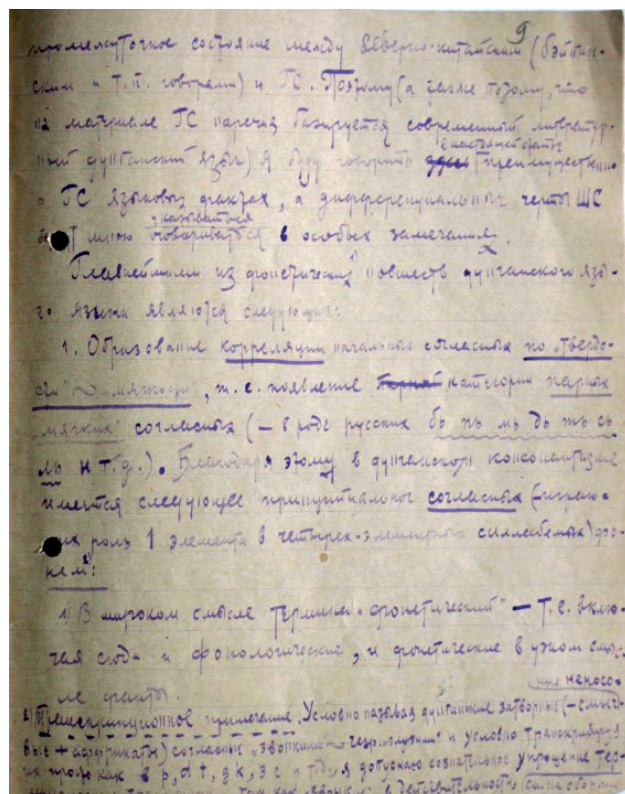 9
промежуточное состояние между северно-китайским (бэйпин-
ским и т.п. говорами) и ГС. Поэтому (а также потому, что
на материале ГС наречия базируется современный литератур-
ный дунганский язык) я буду говорить здесь преимущественно
в настоящей статье
о ГС языковых фактах, а дифференциальные черты ШС
указываться
мною оговариваться в особых замечаниях.
Главнейшими из фонетических 1) новшеств дунганского язы-
го языка являются следующие:
1. Образование корреляции начальных согласных по „твердо-
сти" ~ „мягкости", т.е. появление категории парных
„мягких" согласных (– вроде русских бь пь мь дь ть сь
ль и т.д.). Благодаря этому в дунганском консонантизме
имеются следующее принципиальное согласных (–играю-
их роль 1 элемента в четырех-элементных силлабемах) фо-
нем 2):
1) В широком смысле термина „фонетический" – т.е. вклю-
чая сюда и фонологические, и фонетические в узком смыс-
ле факты.
2) Транскрипционное примечание. Условно называя дунганские затворные (–смыч-
ные + аффрикаты) согласные „звонкими" ~ „глухими" и условно транскрибируя
их как b p, d t, g k, з с и т.д. я допускаю сознательное упрощение тер-
так как в действительности